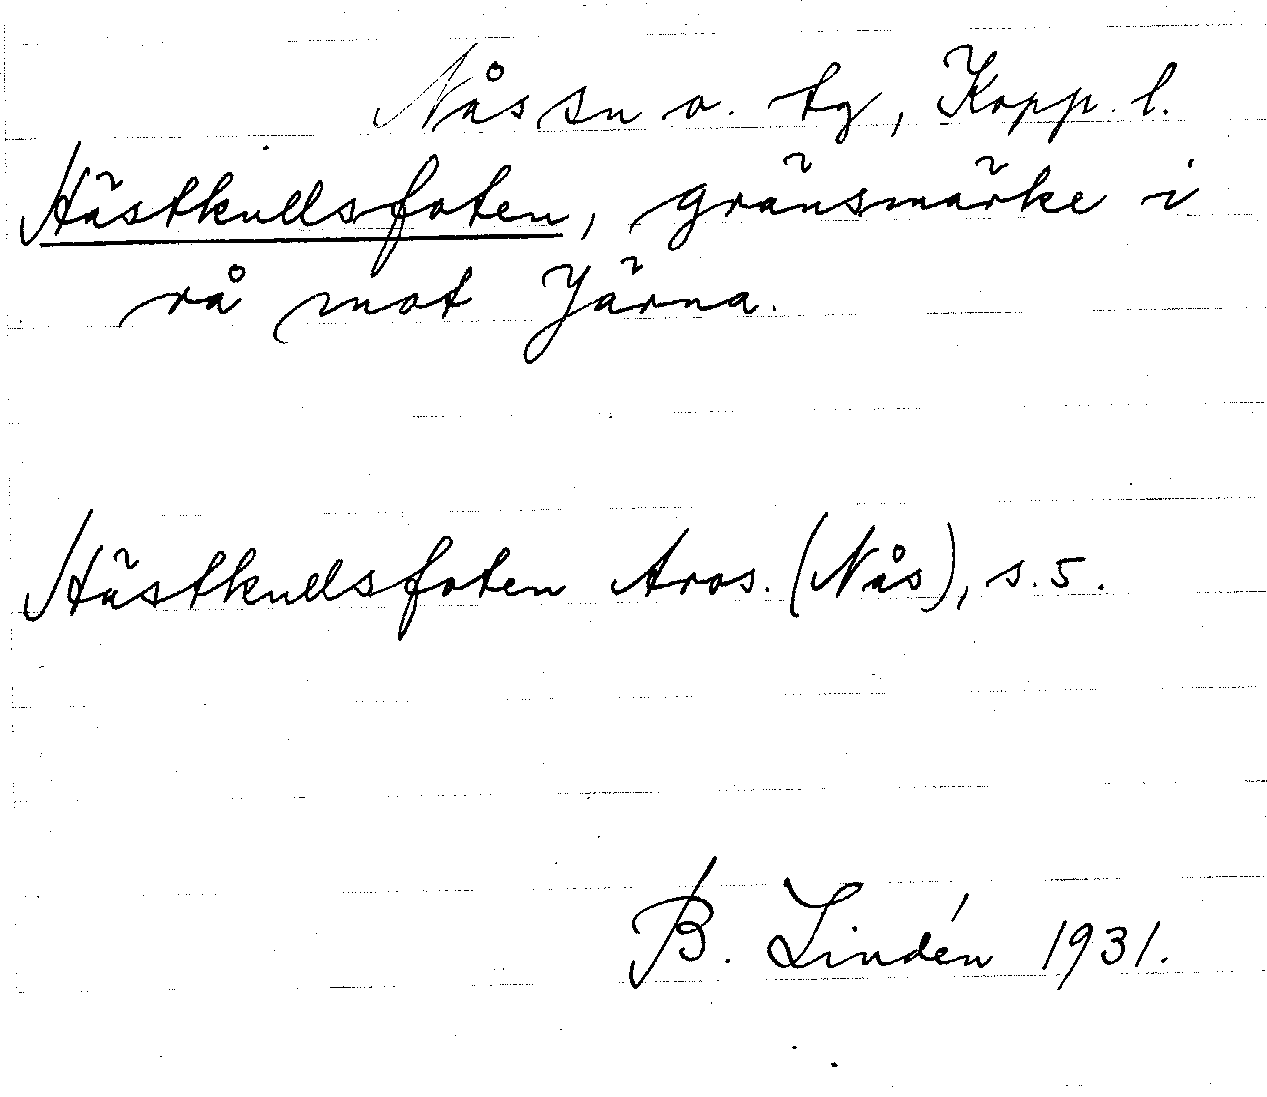 Nås sn o. tg, Kopp. l.
Hästkullsfoten, gränsmärke i
rå mot Järna.
Hästkullsfoten Aros. (Nås), s. 5.
B. Lindén 1931.